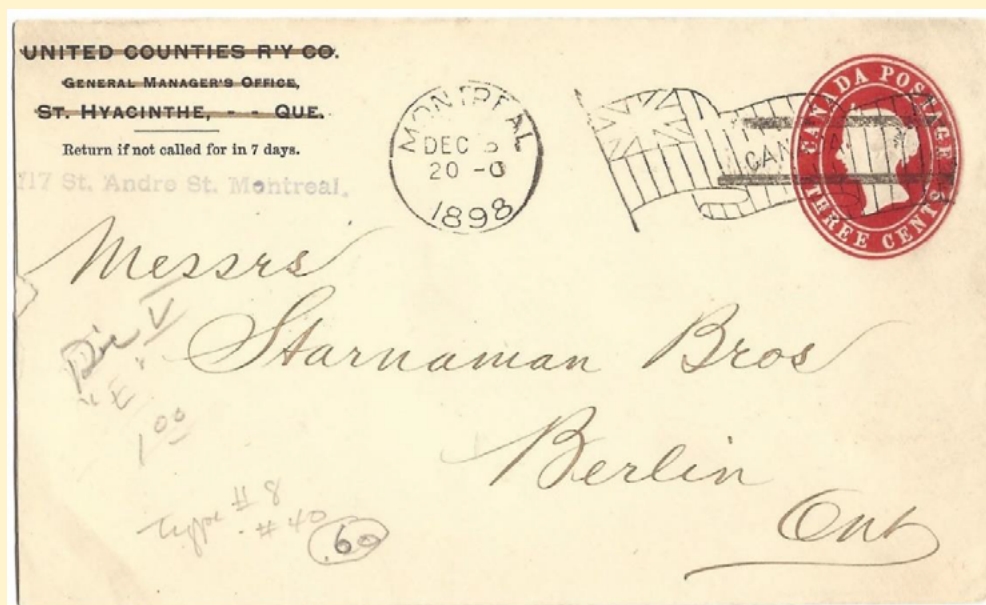 UNITED COUNTIES R'Y CO.
GENERAL MANAGER'S OFFICE,
ST. HYACINTHE, - - QUE.
Return if not called for in 7 days.
117 St. Andre St. Montreal.
MONTREAL
DEC
20 - 0
1898
CANADA
CANADA POSTAGE
THREE CENTS
Messrs
Starnaman Bros
Berlin
Ont
Die V
"E"
1 00
Type # 8
# 40
60